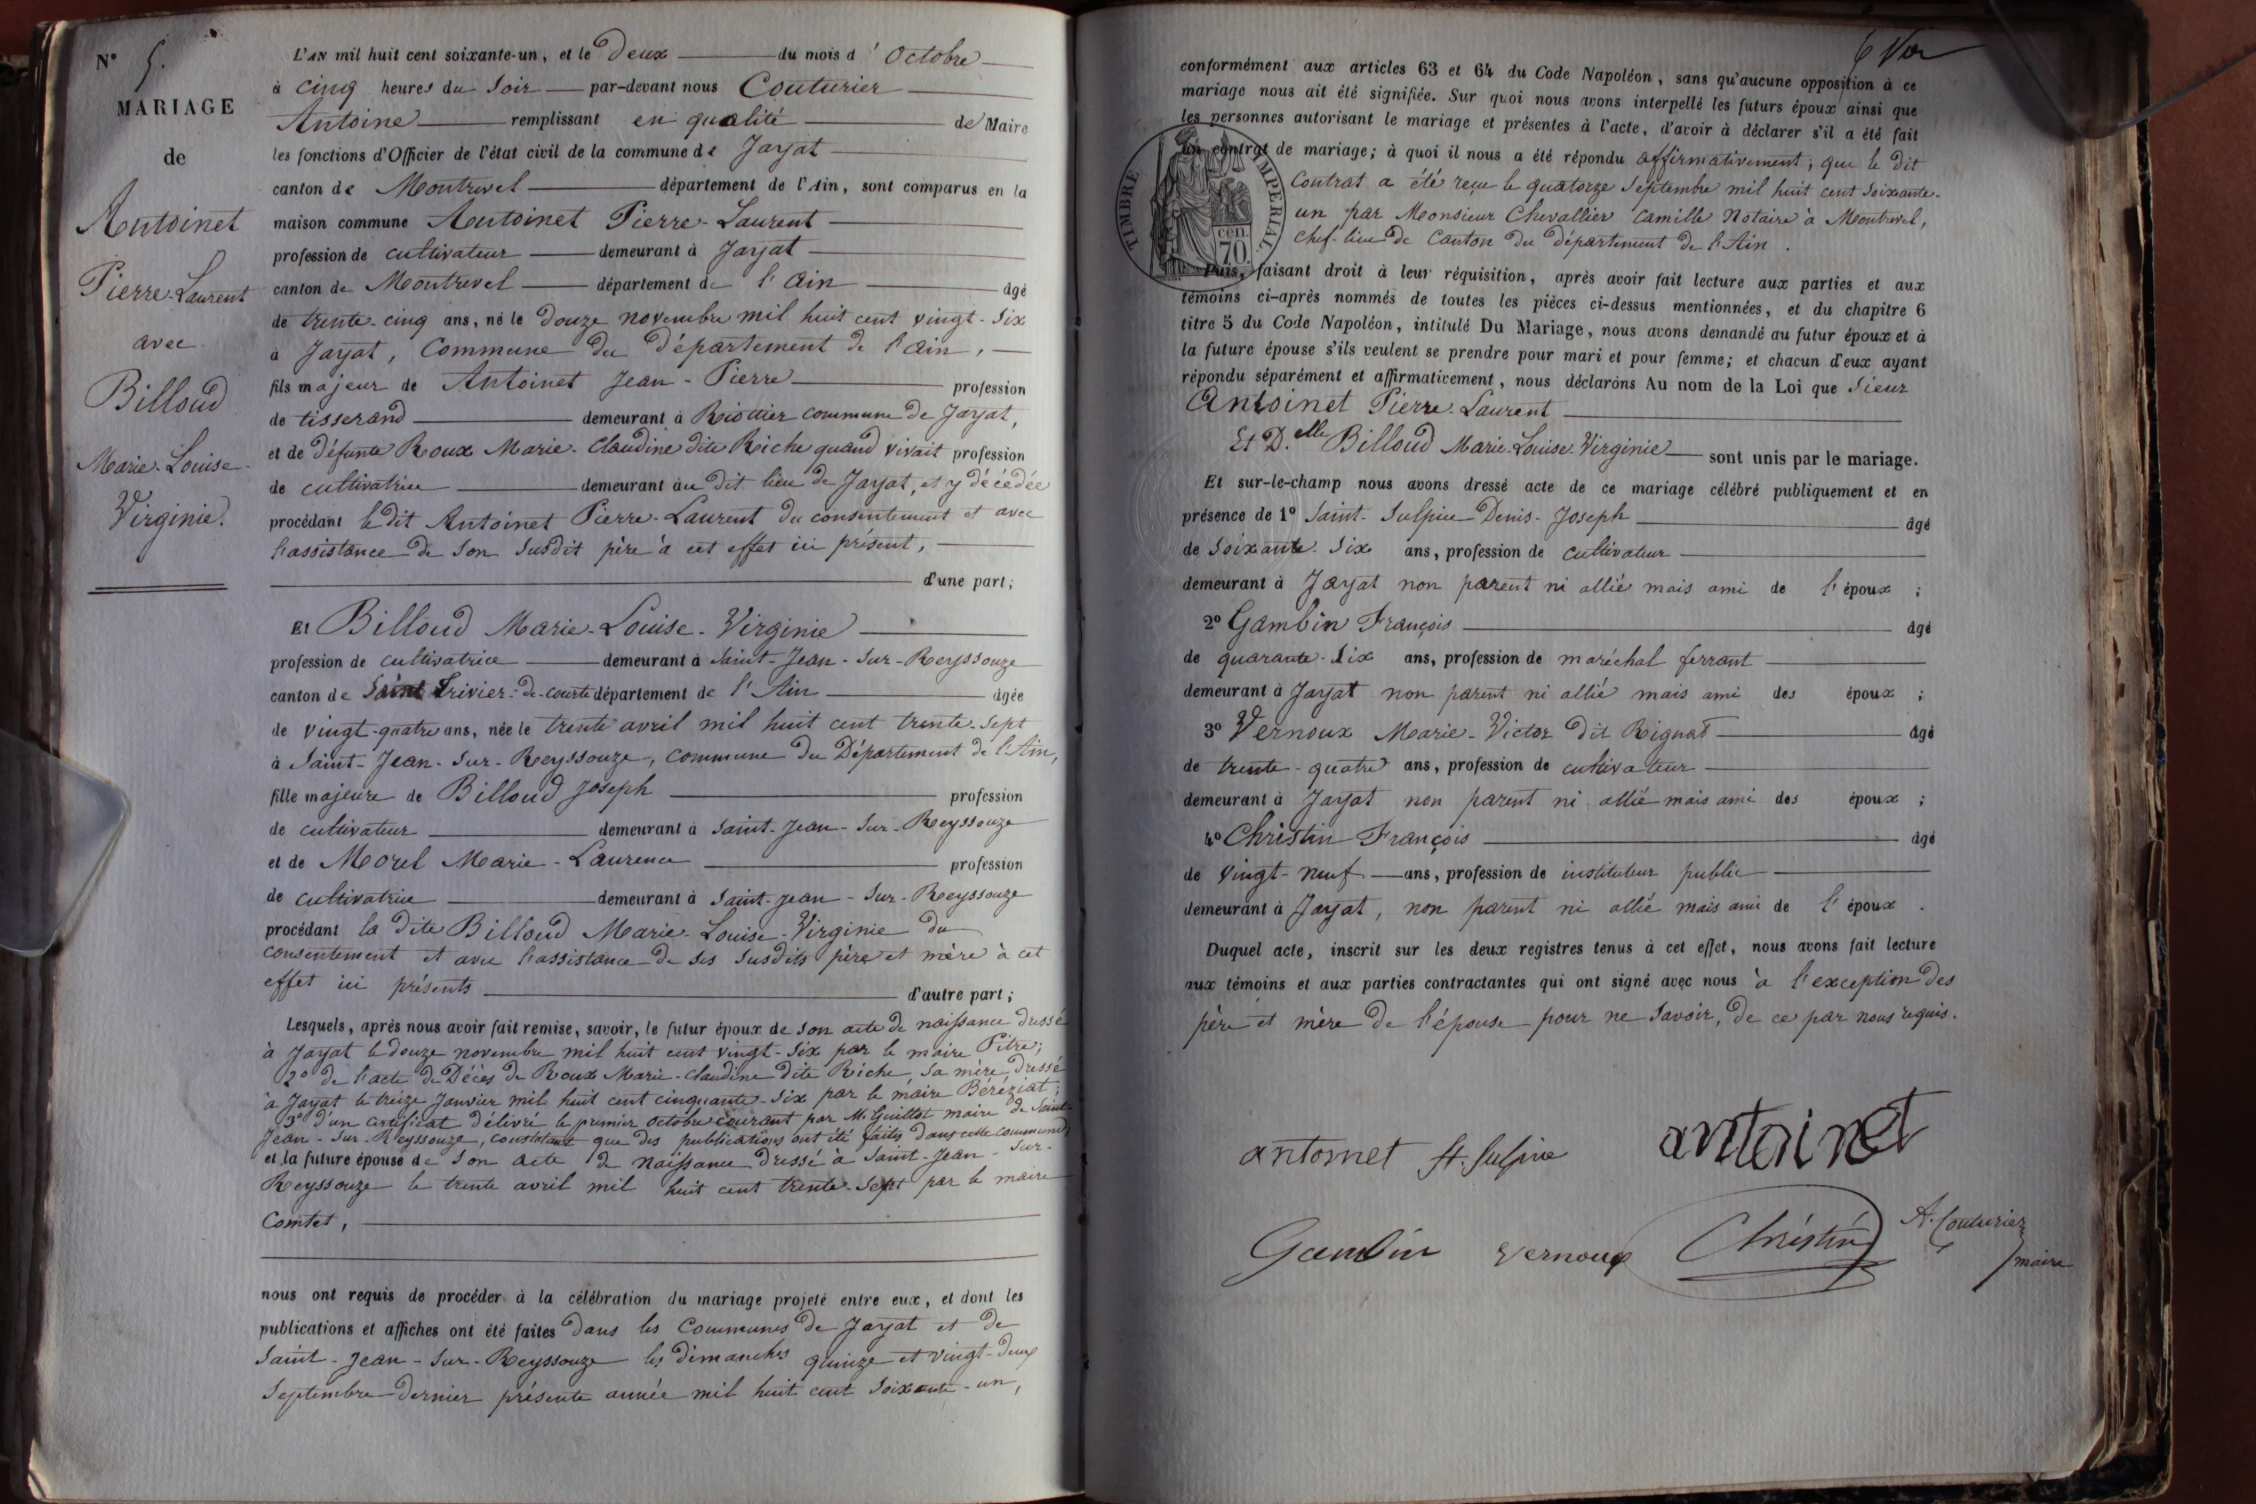 N° 5.
MARIAGE
de
Antoinet
Pierre-Laurent
avec
Billoud
Marie-Louise-
Virginie.
L'AN mil huit cent soixante-un, et le deux du mois d'Octobre
à cinq heures du soir par-devant nous Couturier
Antoine remplissant en qualité de Maire
les fonctions d'Officier de l'état civil de la commune de Jayat
canton de Montrevel département de l'Ain, sont comparus en la
maison commune Antoinet Pierre-Laurent
profession de cultivateur demeurant à Jayat
canton de Montrevel département de l'Ain âgé
de trente-cinq ans, né le douze novembre mil huit cent vingt-six
à Jayat, Commune du Département de l'Ain,
fils majeur de Antoinet Jean-Pierre profession
de tisserand demeurant à Riottier commune de Jayat,
et de défunte Roux Marie-Claudine dite Riche quand vivait profession
de cultivatrice demeurant au dit lieu de Jayat, et y décédée
procédant le dit Antoinet Pierre-Laurent du consentement et avec
l'assistance de son susdit père à cet effet ici présent,
d'une part;
Et Billoud Marie-Louise-Virginie
profession de cultivatrice demeurant à Saint-Jean-sur-Reyssouze
canton de Saint Trivier-de-Courtes département de l'Ain âgée
de vingt-quatre ans, née le trente avril mil huit cent trente-sept
à Saint-Jean-sur-Reyssouze, commune du Département de l'Ain,
fille majeure de Billoud Joseph profession
de cultivateur demeurant à Saint-Jean-sur-Reyssouze
et de Morel Marie-Laurence profession
de cultivatrice demeurant à Saint-Jean-sur-Reyssouze
procédant la dite Billoud Marie-Louise-Virginie du
consentement et avec l'assistance de ses susdits père et mère à cet
effet ici présents d'autre part;
Lesquels, après nous avoir fait remise, savoir, le futur époux de son acte de naissance dressé
à Jayat le douze novembre mil huit cent vingt-six par le maire Pitre;
2° de l'acte de Décès de Roux Marie-Claudine dite Riche, sa mère, dressé
à Jayat le treize Janvier mil huit cent cinquante-six par le maire Béréziat;
3° d'un certificat délivré le premier octobre courant par M. Guillot maire de Saint-
Jean-sur-Reyssouze, constatant que des publications ont été faites dans cette commune;
et la future épouse de son acte de naissance dressé à Saint-Jean-sur-
Reyssouze le trente avril mil huit cent trente-sept par le maire
Comtet,
nous ont requis de procéder à la célébration du mariage projeté entre eux, et dont les
publications et affiches ont été faites dans les Communes de Jayat et de
Saint-Jean-sur-Reyssouze les dimanches quinze et vingt-deux
Septembre dernier présente année mil huit cent soixante-un,
conformément aux articles 63 et 64 du Code Napoléon, sans qu'aucune opposition à ce
mariage nous ait été signifiée. Sur quoi nous avons interpellé les futurs époux ainsi que
les personnes autorisant le mariage et présentes à l'acte, d'avoir à déclarer s'il a été fait
un contrat de mariage; à quoi il nous a été répondu affirmativement, que le dit
Contrat a été reçu le quatorze septembre mil huit cent soixante-
un par Monsieur Chevallier Camille Notaire à Montrevel,
chef-lieu de Canton du département de l'Ain.
TIMBRE IMPERIAL
70 cen.
Puis, faisant droit à leur réquisition, après avoir fait lecture aux parties et aux
témoins ci-après nommés de toutes les pièces ci-dessus mentionnées, et du chapitre 6
titre 5 du Code Napoléon, intitulé Du Mariage, nous avons demandé au futur époux et à
la future épouse s'ils veulent se prendre pour mari et pour femme; et chacun d'eux ayant
répondu séparément et affirmativement, nous déclarons Au nom de la Loi que Sieur
Antoinet Pierre-Laurent
Et D.elle Billoud Marie-Louise-Virginie sont unis par le mariage.
Et sur-le-champ nous avons dressé acte de ce mariage célébré publiquement et en
présence de 1° Saint-Sulpice Denis-Joseph âgé
de soixante-six ans, profession de cultivateur
demeurant à Jayat non parent ni allié mais ami de l'époux;
2° Gambin François âgé
de quarante-six ans, profession de maréchal ferrant
demeurant à Jayat non parent ni allié mais ami des époux;
3° Vernoux Marie-Victor dit Rignat âgé
de trente-quatre ans, profession de cultivateur
demeurant à Jayat non parent ni allié mais ami des époux;
4° Christin François âgé
de vingt-neuf ans, profession de instituteur public
demeurant à Jayat, non parent ni allié mais ami de l'époux.
Duquel acte, inscrit sur les deux registres tenus à cet effet, nous avons fait lecture
aux témoins et aux parties contractantes qui ont signé avec nous à l'exception des
père et mère de l'épouse pour ne savoir, de ce par nous requis.
antoinet St. Sulpice antoinet
Gambin Vernoux Christin A. Couturier
maire